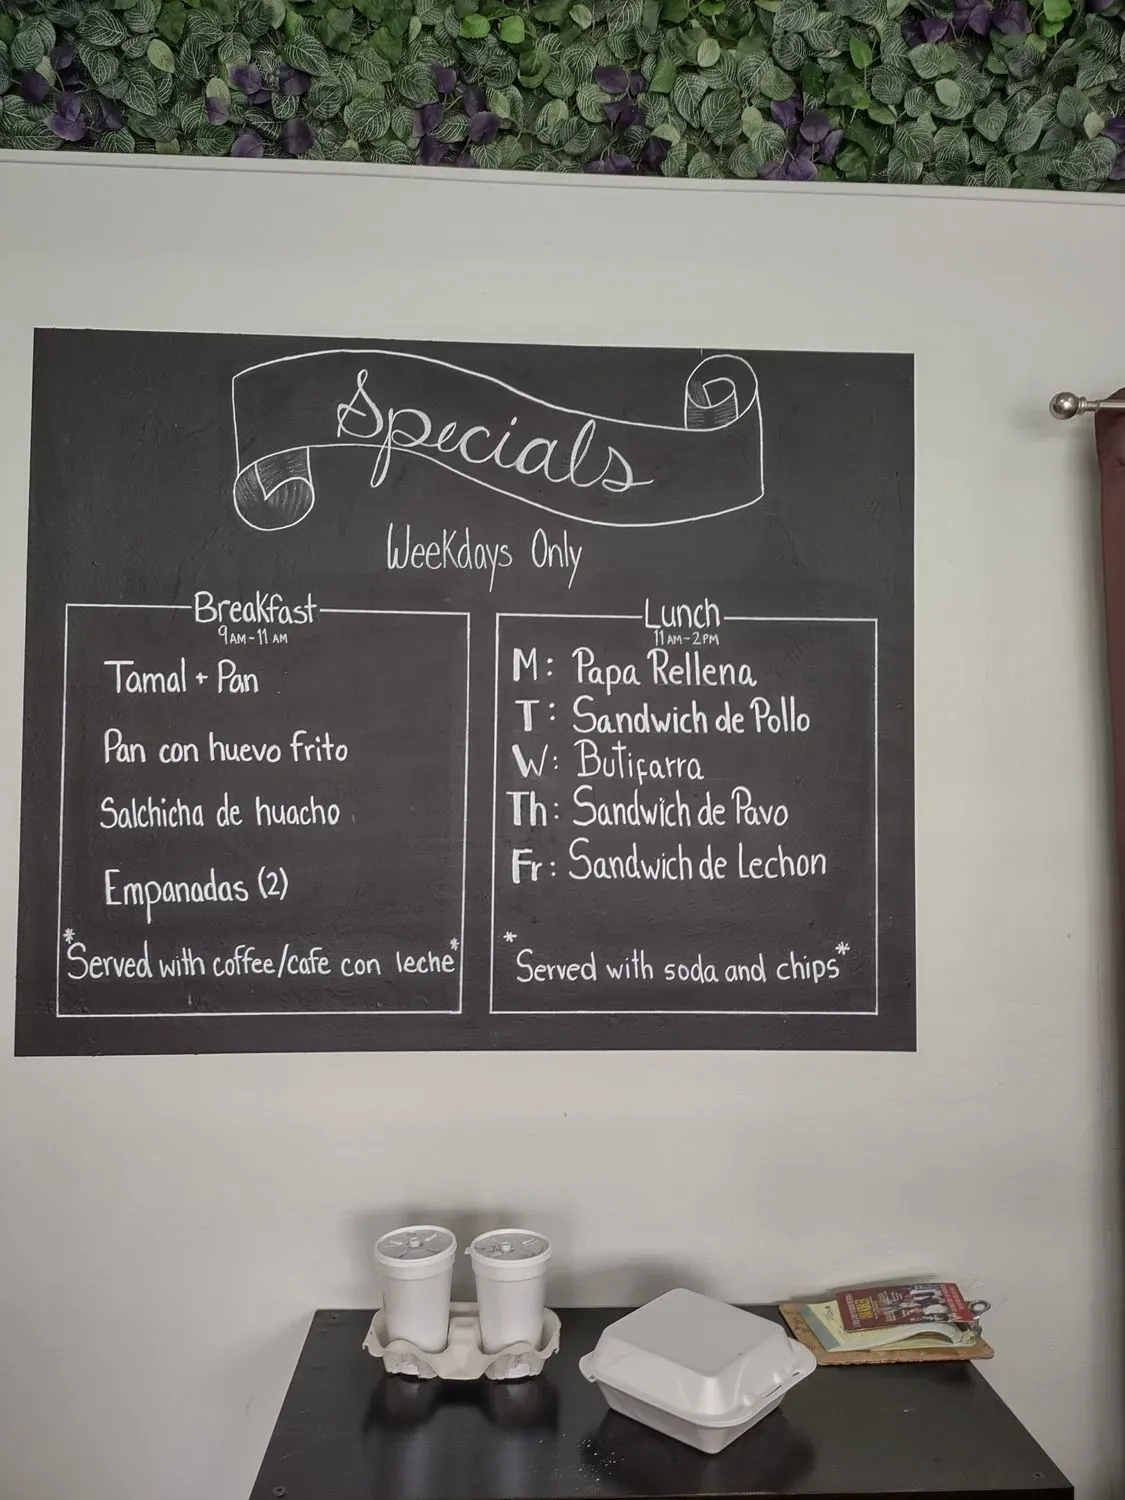 Specials
Weekdays Only
Breakfast
9AM-11 AM
Tamal + Pan
Pan con huevo frito
Salchicha de huacho
Empanadas (2)
*Served with coffee/cafe con leche*
Lunch
11 AM-2PM
M: Papa Rellena
T: Sandwich de Pollo
W: Butifarra
Th: Sandwich de Pavo
Fr: Sandwich de Lechon
*Served with soda and chips*